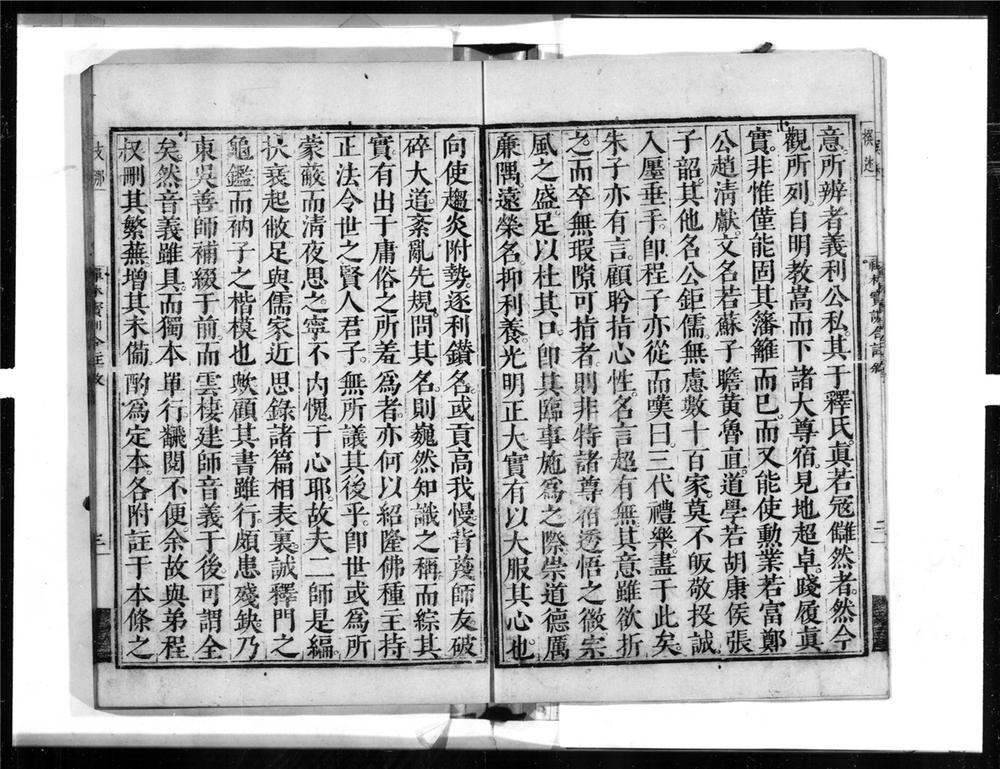 意所辨者義利公私其于釋氏真若冦讎然者然今
觀所列自明教嵩而下諸大尊宿見地超卓踐履眞
實非惟僅能固其籓籬而已而又能使勳業若富鄭
公趙清獻文名若蘇子瞻黃魯直道學若胡康侯張
子韶其他名公鉅儒無慮數十百家莫不皈敬投誠
入㕓垂手卽程子亦從而嘆曰三代禮樂盡于此矣
朱子亦有言顧盻指心性名言超有無其意雖欲折
之而卒無瑕隙可指者則非特諸尊宿透悟之徵宗
風之盛足以杜其口卽其臨事施爲之際崇道德厲
亷隅遠榮名抑利養光明正大實有以大服其心也
向使趨炎附勢逐利鑽名或貢高我慢背蔑師友破
碎大道紊亂先規問其名則巍然知識之稱而綜其
實有出于庸俗之所羞爲者亦何以紹隆佛種主持
正法令世之賢人君子無所議其後乎卽世或爲所
蒙蔽而清夜思之寧不內愧于心耶故夫二師是編
扶衰起敝足與儒家近思錄諸篇相表裏誠釋門之
龜鑑而衲子之楷模也歟顧其書雖行頗患殘缺乃
東吳善師補綴于前而雲棲建師音義于後可謂全
矣然音義雖具而獨本單行飜閱不便余故與弟程
叔刪其繁蕪增其未僃酌爲定本各附註于本條之